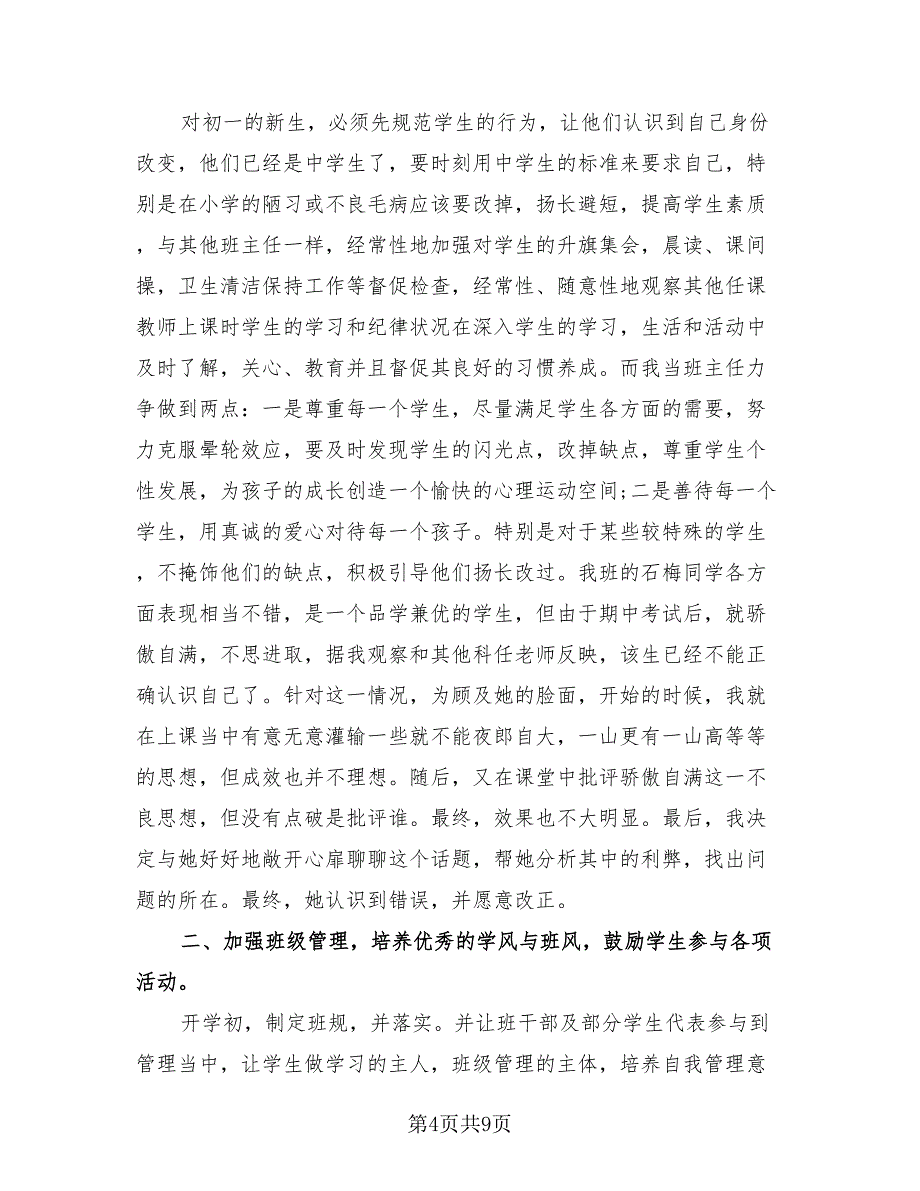 对初一的新生，必须先规范学生的行为，让他们认识到自己身份
改变，他们已经是中学生了，要时刻用中学生的标准来要求自己，特
别是在小学的陋习或不良毛病应该要改掉，扬长避短，提高学生素质
，与其他班主任一样，经常性地加强对学生的升旗集会，晨读、课间
操，卫生清洁保持工作等督促检查，经常性、随意性地观察其他任课
教师上课时学生的学习和纪律状况在深入学生的学习，生活和活动中
及时了解，关心、教育并且督促其良好的习惯养成。而我当班主任力
争做到两点：一是尊重每一个学生，尽量满足学生各方面的需要，努
力克服晕轮效应，要及时发现学生的闪光点，改掉缺点，尊重学生个
性发展，为孩子的成长创造一个愉快的心理运动空间;二是善待每一个
学生，用真诚的爱心对待每一个孩子。特别是对于某些较特殊的学生
，不掩饰他们的缺点，积极引导他们扬长改过。我班的石梅同学各方
面表现相当不错，是一个品学兼优的学生，但由于期中考试后，就骄
傲自满，不思进取，据我观察和其他科任老师反映，该生已经不能正
确认识自己了。针对这一情况，为顾及她的脸面，开始的时候，我就
在上课当中有意无意灌输一些就不能夜郎自大，一山更有一山高等等
的思想，但成效也并不理想。随后，又在课堂中批评骄傲自满这一不
良思想，但没有点破是批评谁。最终，效果也不大明显。最后，我决
定与她好好地敞开心扉聊聊这个话题，帮她分析其中的利弊，找出问
题的所在。最终，她认识到错误，并愿意改正。
二、加强班级管理，培养优秀的学风与班风，鼓励学生参与各项
活动。
开学初，制定班规，并落实。并让班干部及部分学生代表参与到
管理当中，让学生做学习的主人，班级管理的主体，培养自我管理意
第4页共9页